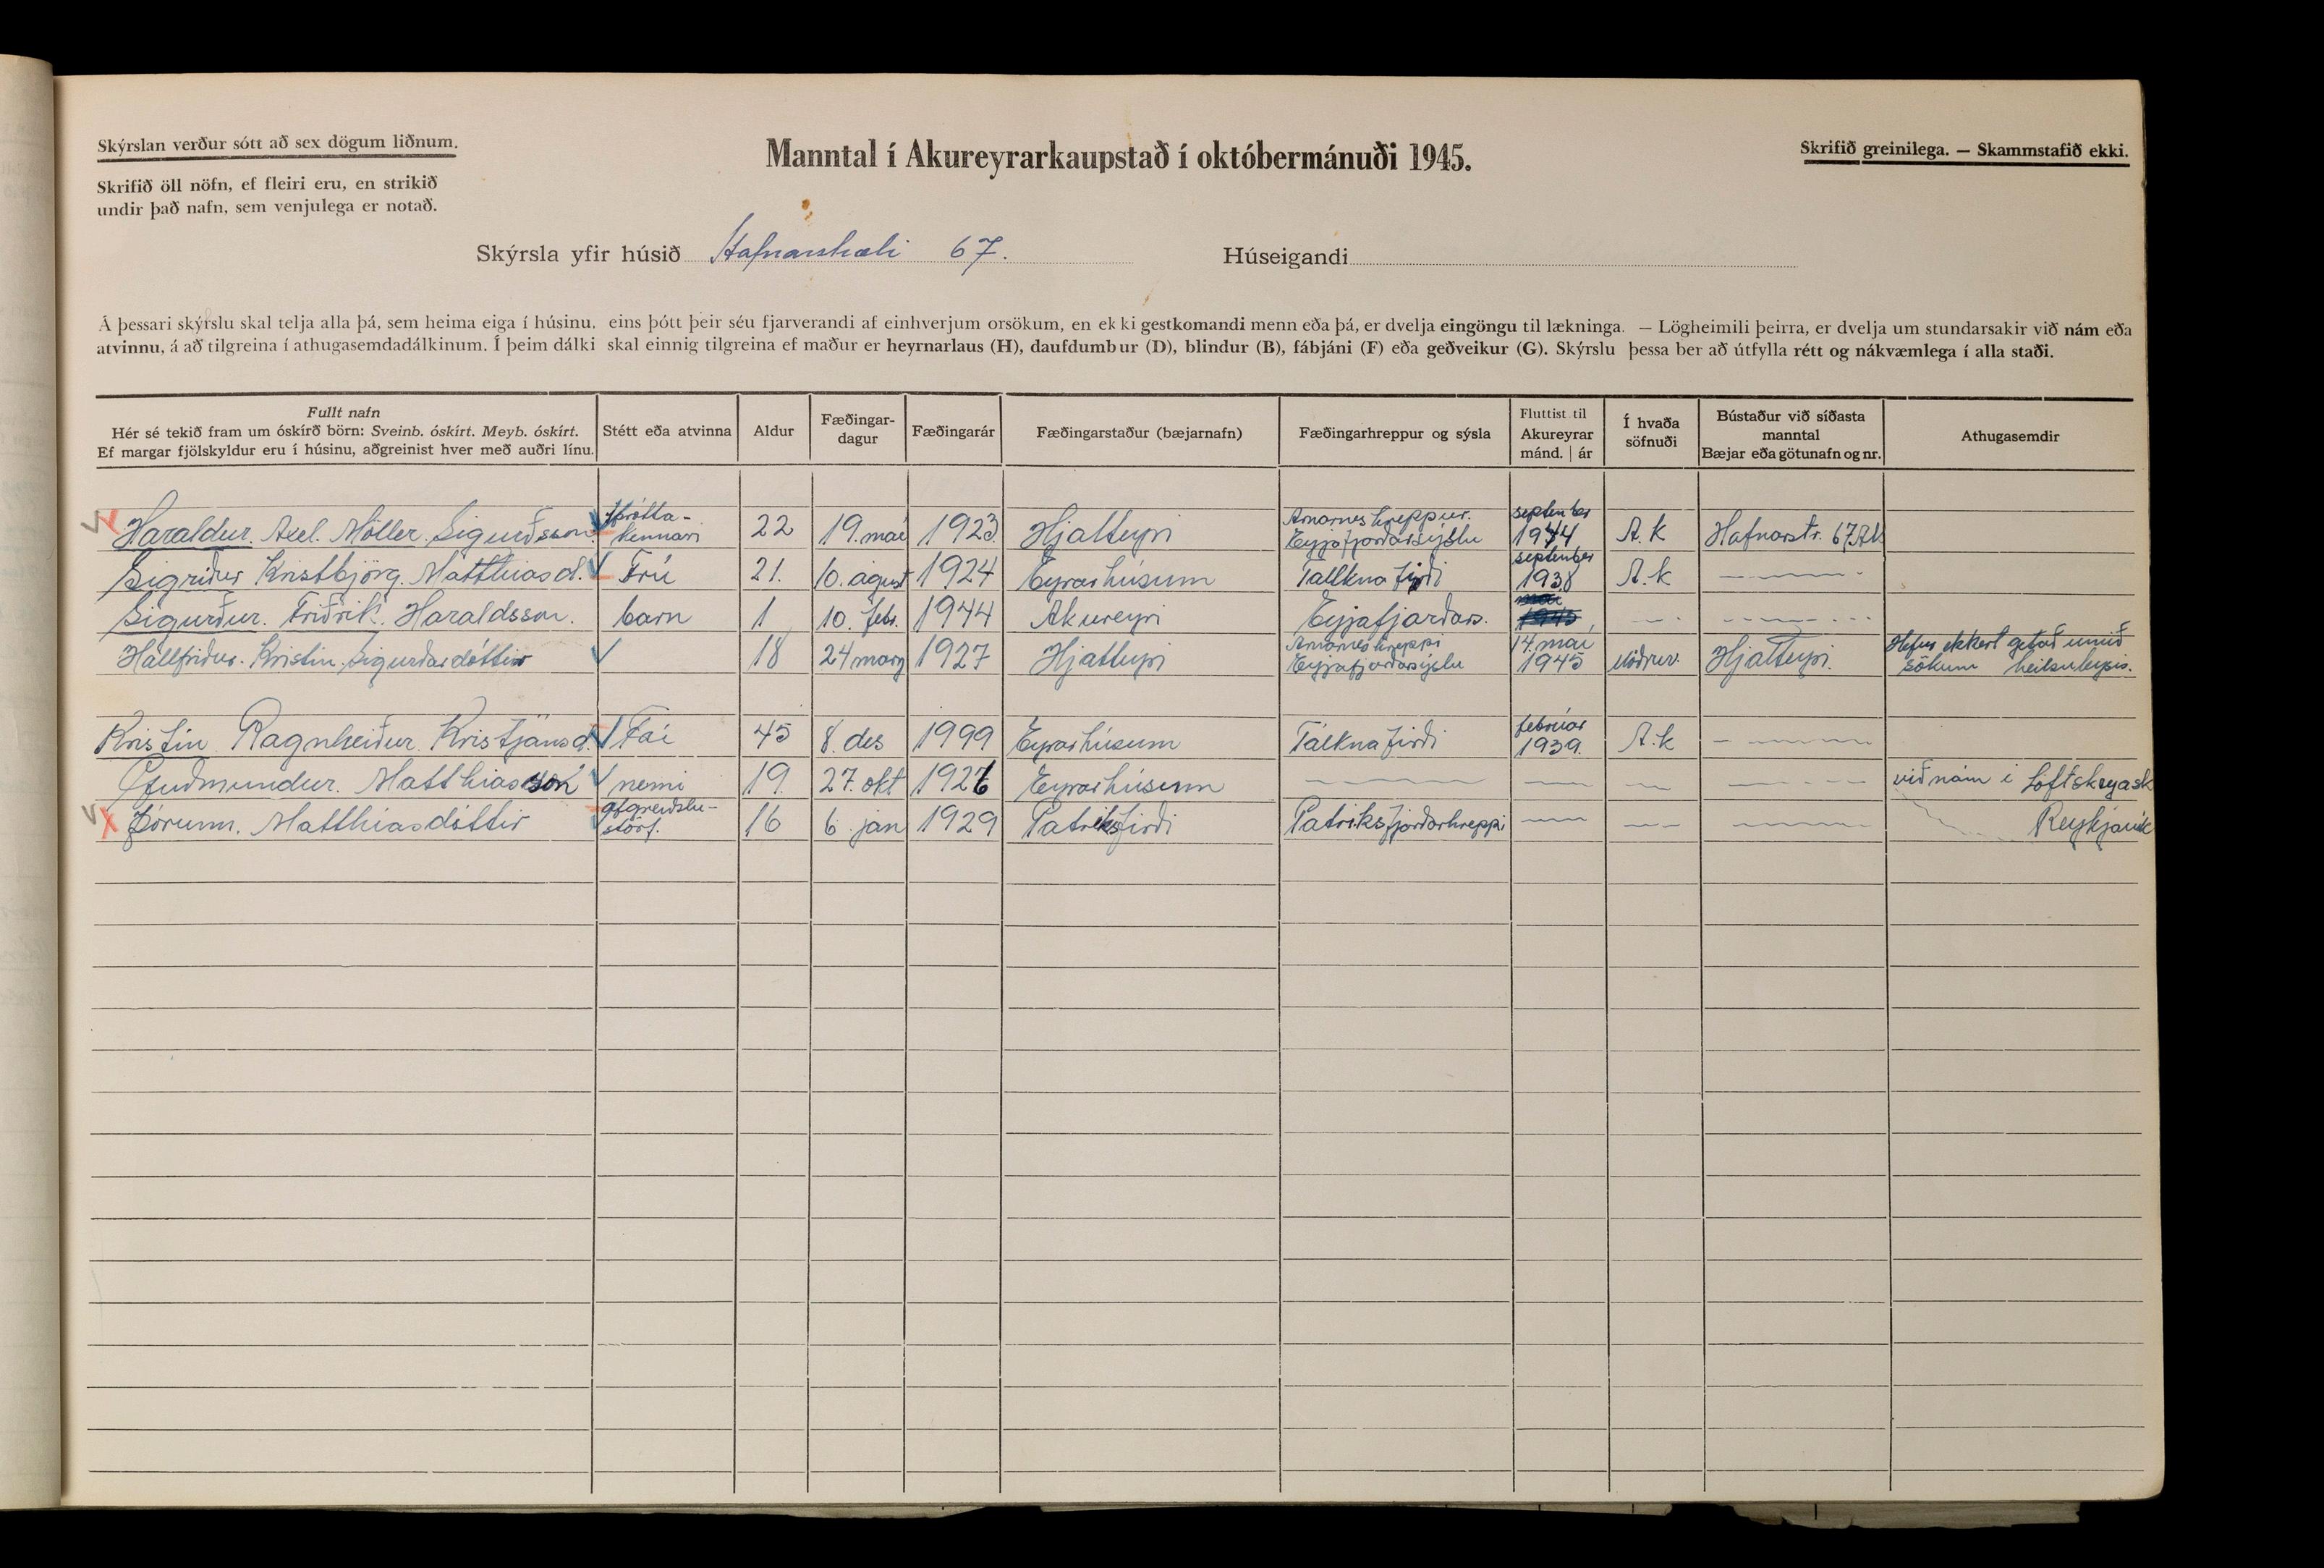 Skýrslan verður sótt að sex dögum liðnum.
Skrifið öll nöfn, ef fleiri eru, en strikið
undir það nafn, sem venjulega er notað.
Manntal í Akureyrarkaupstað í októbermánuði 1945.
Skrifið greinilega. — Skammstafið ekki.
Skýrsla yfir húsið 67. Húseigandi
Á þessari skýrslu skal telja alla þá, sem heima eiga í húsinu, eins þótt þeir séu fjarverandi af einhverjum orsökum, en ekki gestkomandi menn eða þá, er dvelja eingöngu til lækninga. — Lögheimili þeirra, er dvelja um stundarsakir við nám eða
atvinnu, á að tilgreina í athugasemdadálkinum. Í þeim dálki skal einnig tilgreina ef maður er heyrnarlaus (H), daufdumbur (D), blindur (B), fábjáni (F) eða geðveikur (G). Skýrslu þessa ber að útfylla rétt og nákvæmlega í alla staði.
Fullt nafn
Hér sé tekið fram um óskírð börn: Sveinb. óskírt. Meyb. óskírt.
Ef margar fjölskyldur eru í húsinu, aðgreinist hver með auðri línu.
Stétt eða atvinna
Aldur
Fæðingar-
dagur
Fæðingarár
Fæðingarstaður (bæjarnafn)
Fæðingarhreppur og sýsla
Fluttist til
Akureyrar
mánd. | ár
Í hvaða
söfnuði
Bústaður við síðasta
manntal
Bæjar eða götunafn og nr.
Athugasemdir
Haraldur. Axel. Möller. Sigurðsson. Íþrótta-kennari 22 19. maí 1923. Hjalteyri Arnarneshreppur. Eyjafjarðarsýslu september 1944 A.k Hafnarstr. 67 Ak
Sigríður Kristbjörg. Matthíasd. Frú 21. 10. ágúst 1924 Eyrarhúsum Tálknafirði september 1938 A.k
Sigurður. Friðrik. Haraldsson. barn 1 10. febr. 1944 Akureyri Eyjafjarðars.
Hallfríður. Kristín. Sigurðardóttir 18 24 marz 1927 Hjalteyri Arnarneshreppi Eyjafjarðarsýslu 14. maí 1945 Möðruv. Hjalteyri. Hefur ekkert getað unnið sökum heilsuleysis.
Kristín Ragnheiður Kristjánsd. Frú 45 8. des 1999 Eyrarhúsum Tálknafirði febrúar 1939. A.k
Guðmundur. Matthíasson nemi 19 27. okt 1926 Eyrarhúsum við nám í Loftskeytask
Þórunn. Matthíasdóttir afgreiðslu-störf. 16 6. jan 1929 Patriksfirði Patriksfjarðarhreppi Reykjavík